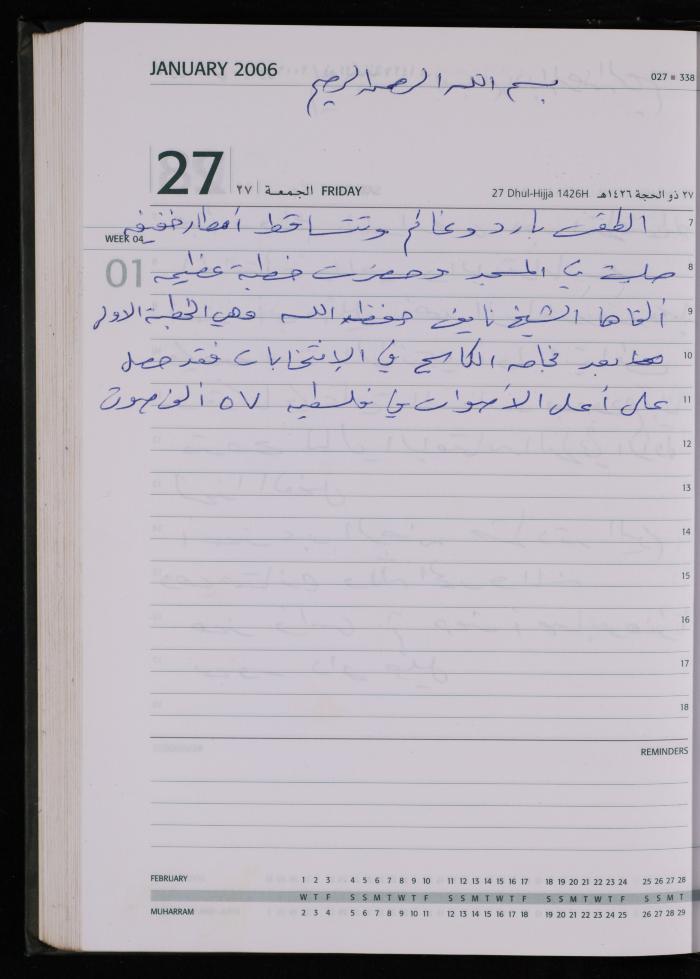 JANUARY 2006
027 ■ 338
بسم الله الرحمن الرحيم
27
٢٧ | الجمعة FRIDAY
27 Dhul-Hijja 1426H ٢٧ ذو الحجة ١٤٢٦هـ
الطقس بارد وغائم وتتساقط أمطار خفيفه 7
WEEK 04
01
صليت في المسجد وحضرت خطبة عظيمه 8
ألقاها الشيخ نايف حفظه الله وهي الخطبة الاولى 9
بعد نجاحه الكاسح في الإنتخابات فقد حصل 10
على أعلى الأصوات في فلسطين ٥٧ ألف صوت 11
12
13
14
15
16
17
18
REMINDERS
FEBRUARY 1 2 3 4 5 6 7 8 9 10 11 12 13 14 15 16 17 18 19 20 21 22 23 24 25 26 27 28
W T F S S M T W T F S S M T W T F S S M T W T F S S M T
MUHARRAM 2 3 4 5 6 7 8 9 10 11 12 13 14 15 16 17 18 19 20 21 22 23 24 25 26 27 28 29